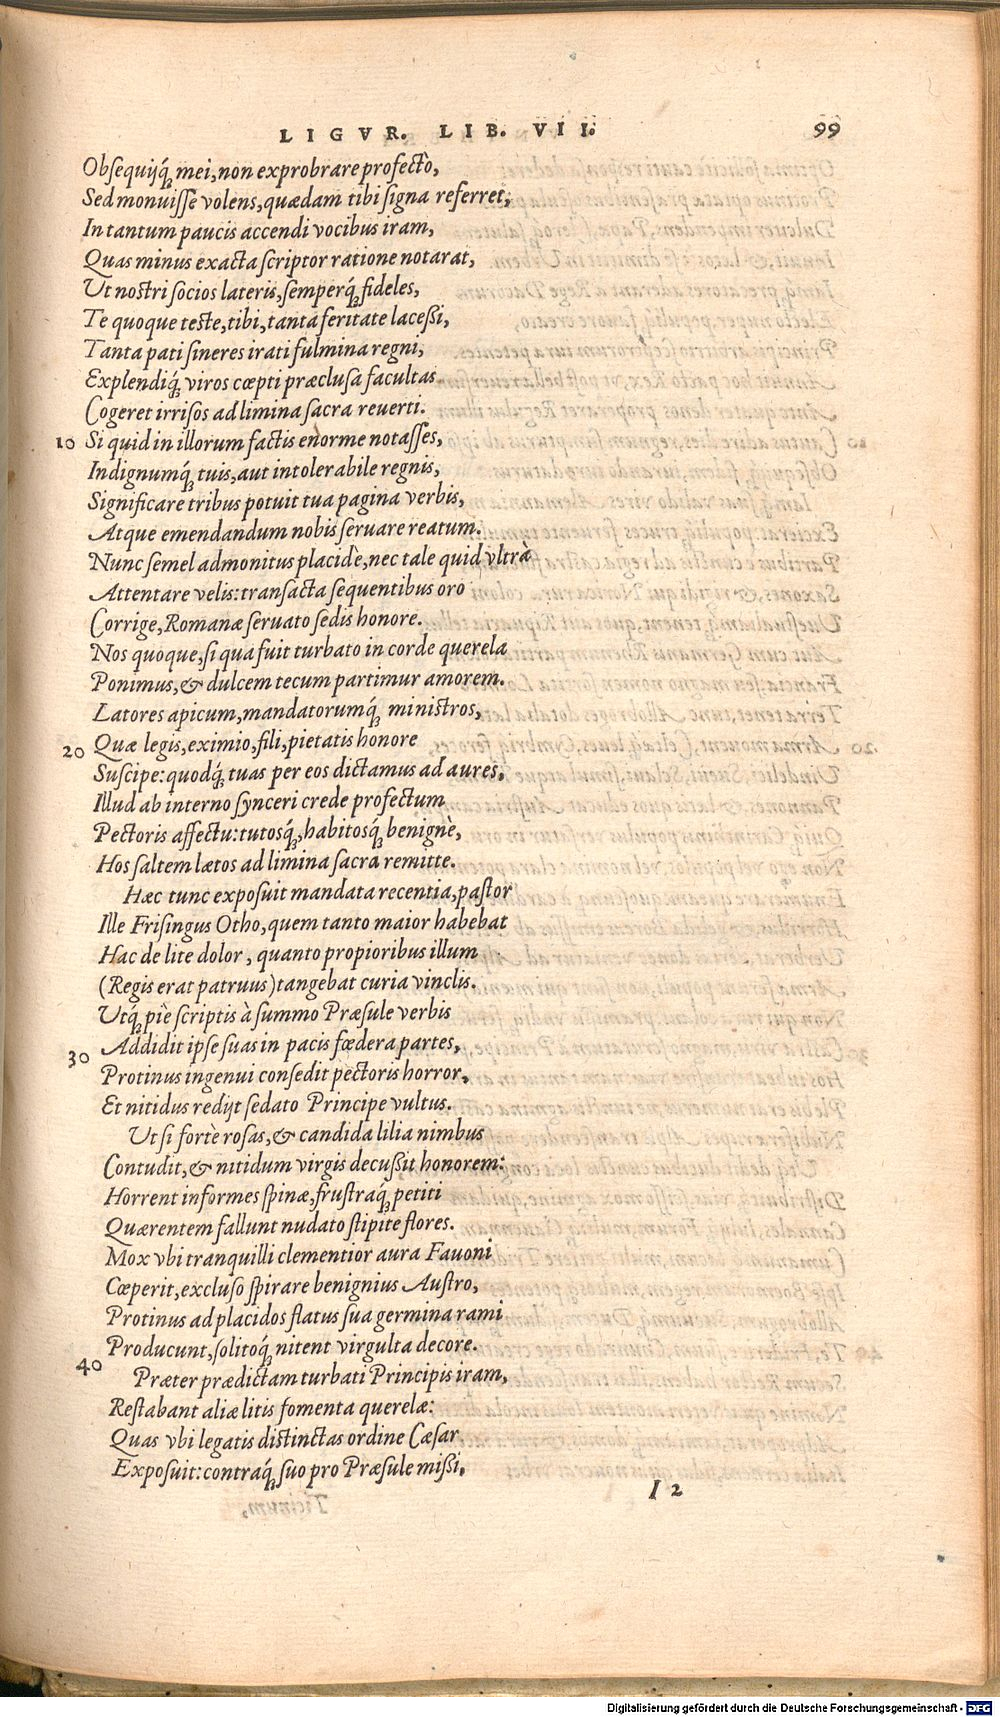 LIGVR. LIB. VII. 99
Obsequijq́; mei, non exprobrare profectò,
Sed monuisse volens, quædam tibi signa referret,
In tantum paucis accendi vocibus iram,
Quas minus exacta scriptor ratione notarat,
Ut nostri socios lateris, semperq́; fideles,
Te quoque teste, tibi, tanta feritate lacessi,
Tanta pati sineres irati fulmina regni,
Explendiq́; viros cœpti præclusa facultas
Cogeret irrisos ad limina sacra reuerti.
10 Si quid in illorum factis enorme notasses,
Indignumq́; tuis, aut intolerabile regnis,
Significare tribus potuit tua pagina verbis,
Atque emendandum nobis seruare reatum.
Nunc semel admonitus placidè, nec tale quid vltrà
Attentare velis: transacta sequentibus oro
Corrige, Romanæ seruato sedis honore.
Nos quoque, si qua fuit turbato in corde querela
Ponimus, & dulcem tecum partimur amorem.
Latores apicum, mandatorumq́; ministros,
20 Quæ legis, eximio, fili, pietatis honore
Suscipe: quodq́; tuas per eos dictamus ad aures,
Illud ab interno synceri crede profectum
Pectoris affectu: tutosq́;, habitosq́; benignè,
Hos saltem lætos ad limina sacra remitte.
Hæc tunc exposuit mandata recentia, pastor
Ille Frisingus Otho, quem tanto maior habebat
Hac de lite dolor, quanto propioribus illum
(Regis erat patruus) tangebat curia vinclis.
Utq́; piè scriptis à summo Præsule verbis
30 Addidit ipse suas in pacis fœdera partes,
Protinus ingenui consedit pectoris horror,
Et nitidus redijt sedato Principe vultus.
Ut si fortè rosas, & candida lilia nimbus
Contudit, & nitidum virgis decussit honorem:
Horrent informes spinæ, frustraq́; petiti
Quærentem fallunt nudato stipite flores.
Mox vbi tranquilli clementior aura Fauoni
Cœperit, excluso spirare benignius Austro,
Protinus ad placidos flatus sua germina rami
Producunt, solitoq́; nitent virgulta decore.
40 Præter prædictam turbati Principis iram,
Restabant aliæ litis fomenta querelæ:
Quas vbi legatis distinctas ordine Cæsar
Exposuit: contraq́; suo pro Præsule missi,
I 2
Ticinum,
Digitalisierung gefördert durch die Deutsche Forschungsgemeinschaft - DFG